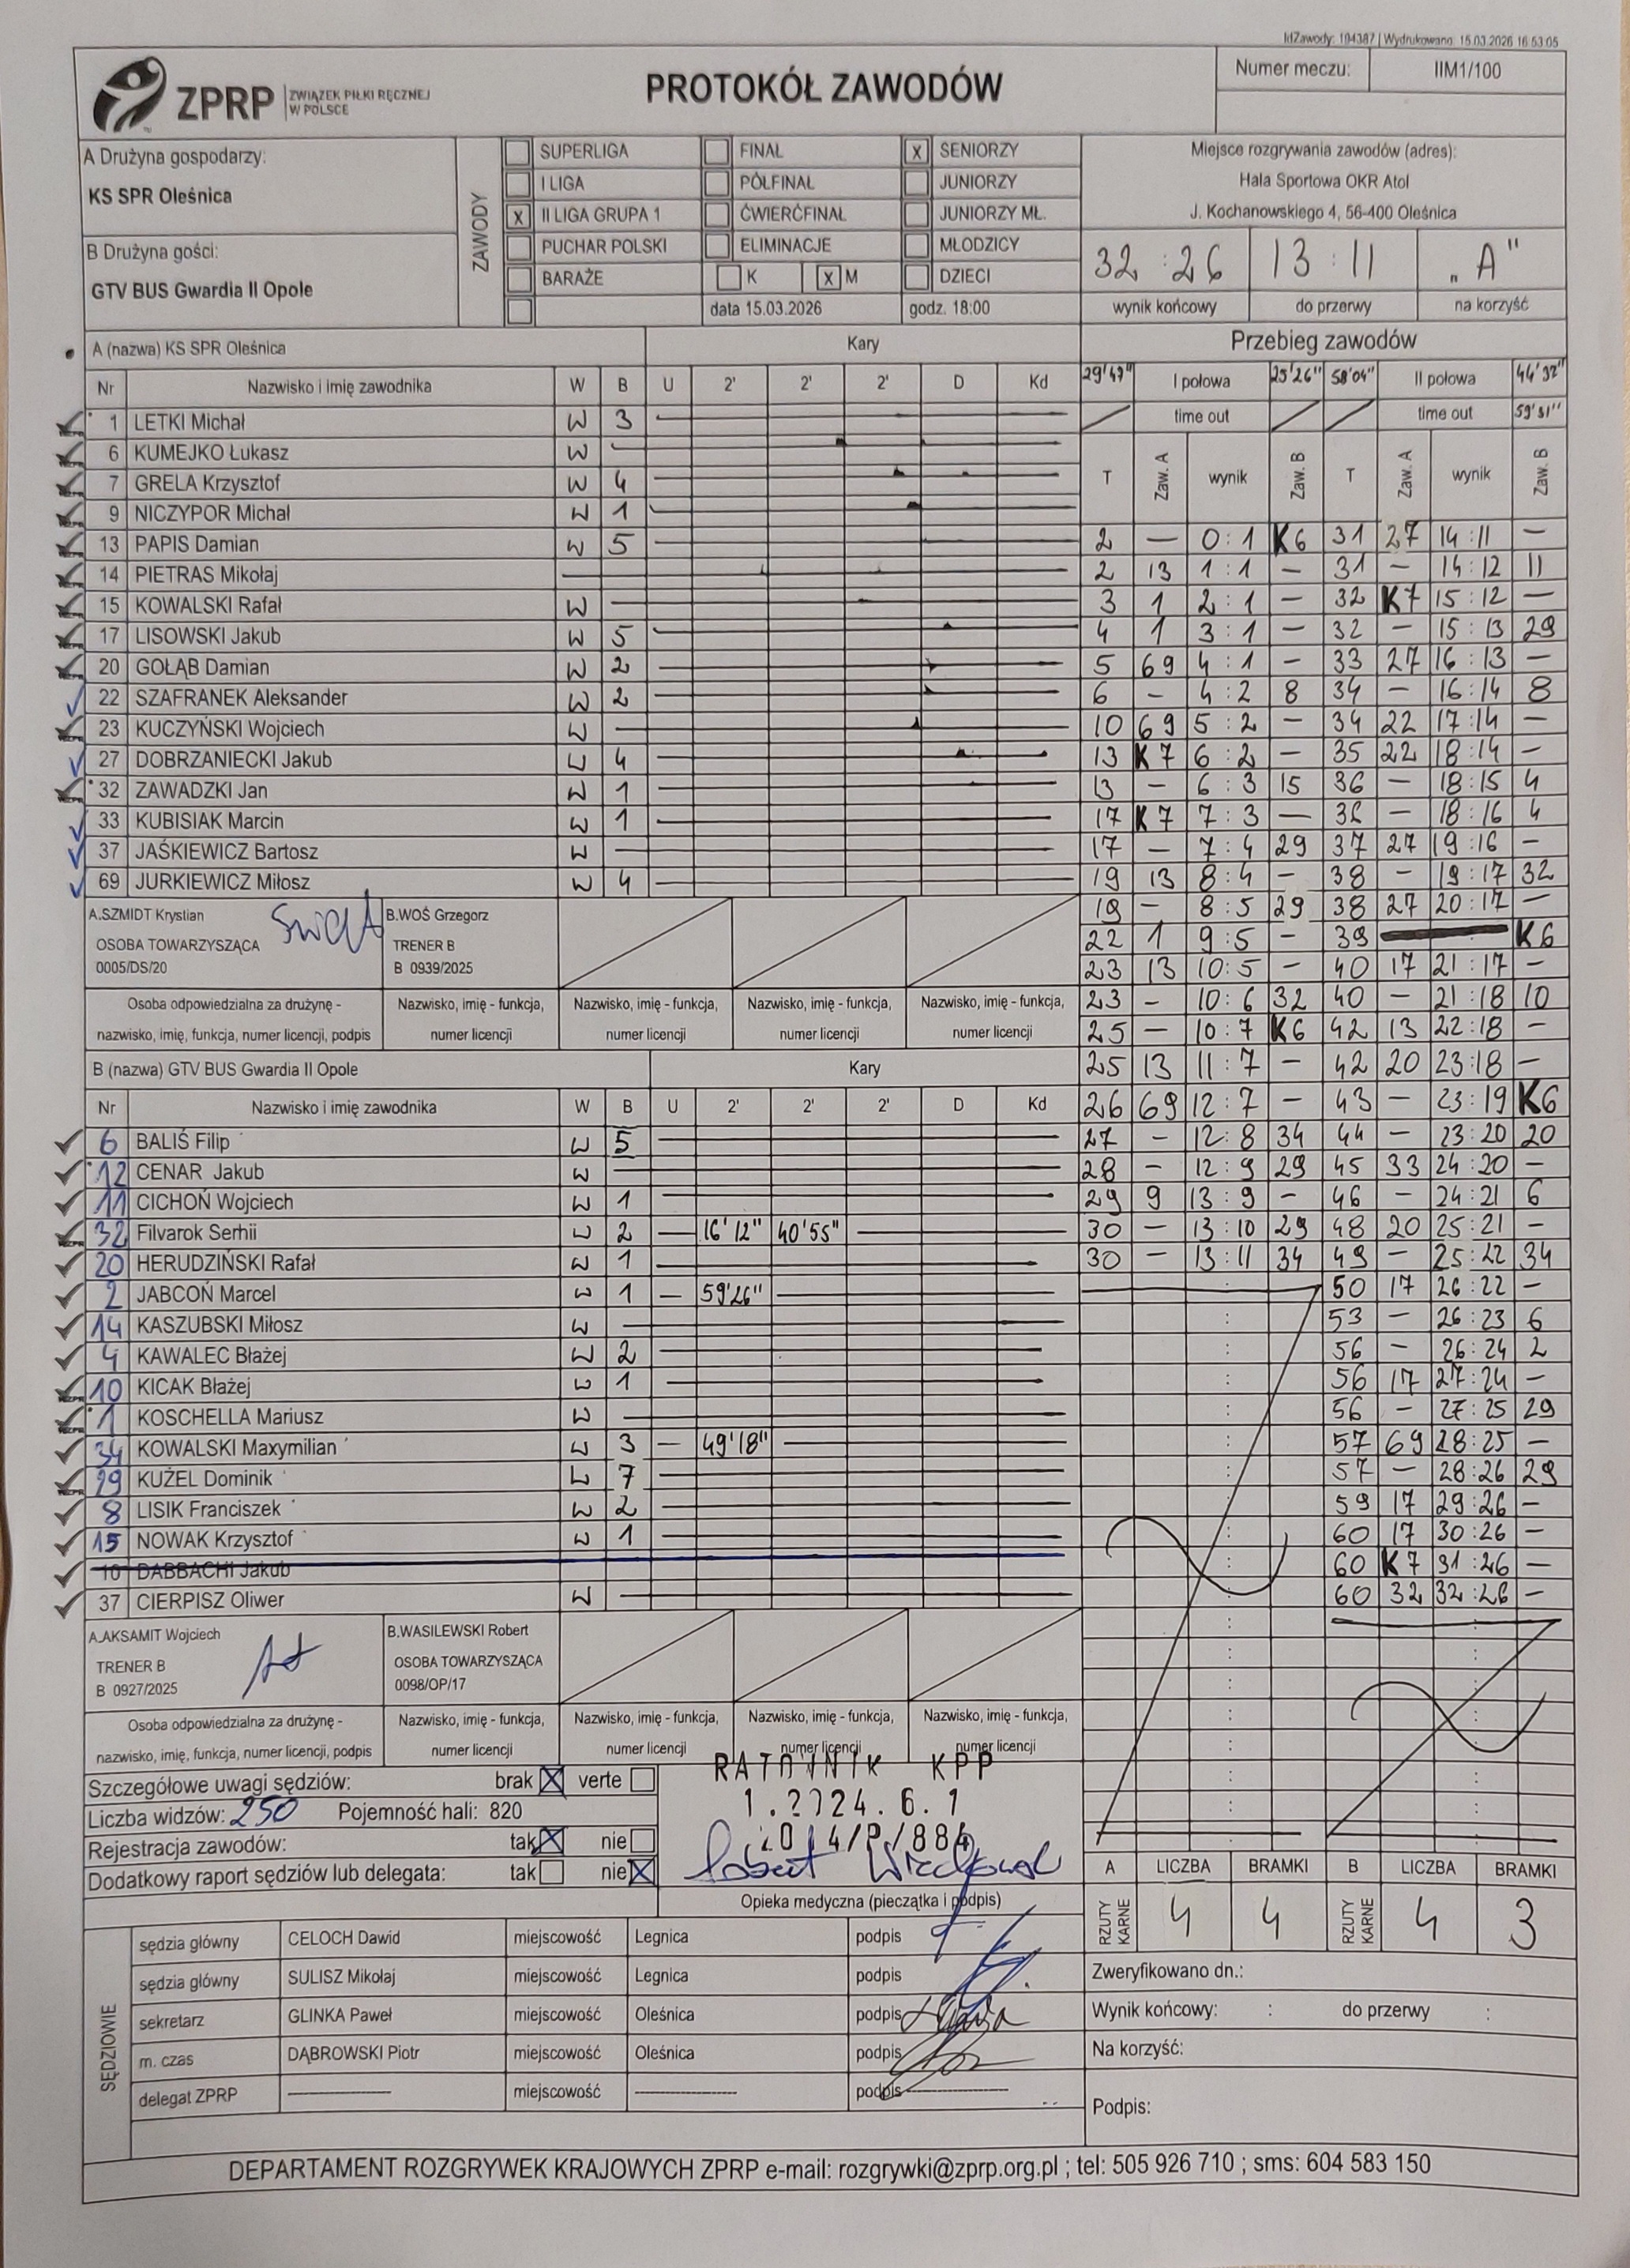 IdZawody: 194387 | Wydrukowano: 15.03.2026 16:53:05
ZPRP ZWIĄZEK PIŁKI RĘCZNEJ W POLSCE
PROTOKÓŁ ZAWODÓW
Numer meczu: IIM1/100
A Drużyna gospodarzy:
KS SPR Oleśnica
B Drużyna gości:
GTV BUS Gwardia II Opole
ZAWODY
SUPERLIGA FINAŁ X SENIORZY
I LIGA PÓŁFINAŁ JUNIORZY
X II LIGA GRUPA 1 ĆWIERĆFINAŁ JUNIORZY MŁ.
PUCHAR POLSKI ELIMINACJE MŁODZICY
BARAŻE K X M DZIECI
data 15.03.2026 godz. 18:00
Miejsce rozgrywania zawodów (adres):
Hala Sportowa OKR Atol
J. Kochanowskiego 4, 56-400 Oleśnica
32 : 26 13 : 11 „A"
wynik końcowy do przerwy na korzyść
A (nazwa) KS SPR Oleśnica Kary
Nr Nazwisko i imię zawodnika W B U 2' 2' 2' D Kd
1 LETKI Michał W 3
6 KUMEJKO Łukasz W —
7 GRELA Krzysztof W 4
9 NICZYPOR Michał W 1
13 PAPIS Damian W 5
14 PIETRAS Mikołaj —
15 KOWALSKI Rafał W —
17 LISOWSKI Jakub W 5
20 GOŁĄB Damian W 2
22 SZAFRANEK Aleksander W 2
23 KUCZYŃSKI Wojciech W —
27 DOBRZANIECKI Jakub W 4
32 ZAWADZKI Jan W 1
33 KUBISIAK Marcin W 1
37 JAŚKIEWICZ Bartosz W —
69 JURKIEWICZ Miłosz W 4
A.SZMIDT Krystian
OSOBA TOWARZYSZĄCA
0005/DS/20
B.WOŚ Grzegorz
TRENER B
B 0939/2025
Osoba odpowiedzialna za drużynę -
nazwisko, imię, funkcja, numer licencji, podpis
Nazwisko, imię - funkcja,
numer licencji
Nazwisko, imię - funkcja,
numer licencji
Nazwisko, imię - funkcja,
numer licencji
Nazwisko, imię - funkcja,
numer licencji
B (nazwa) GTV BUS Gwardia II Opole Kary
Nr Nazwisko i imię zawodnika W B U 2' 2' 2' D Kd
6 BALIŚ Filip W 5
12 CENAR Jakub W —
11 CICHOŃ Wojciech W 1
32 Filvarok Serhii W 2 — 16'12" 40'55" —
20 HERUDZIŃSKI Rafał W 1
2 JABCOŃ Marcel W 1 — 59'26" —
14 KASZUBSKI Miłosz W —
4 KAWALEC Błażej W 2
10 KICAK Błażej W 1
1 KOSCHELLA Mariusz W —
34 KOWALSKI Maxymilian W 3 — 49'18" —
29 KUŻEL Dominik W 7
8 LISIK Franciszek W 2
15 NOWAK Krzysztof W 1
10 DABBACHI Jakub
37 CIERPISZ Oliwer W —
A.AKSAMIT Wojciech
TRENER B
B 0927/2025
B.WASILEWSKI Robert
OSOBA TOWARZYSZĄCA
0098/OP/17
Osoba odpowiedzialna za drużynę -
nazwisko, imię, funkcja, numer licencji, podpis
Nazwisko, imię - funkcja,
numer licencji
Nazwisko, imię - funkcja,
numer licencji
Nazwisko, imię - funkcja,
numer licencji
Nazwisko, imię - funkcja,
numer licencji
Przebieg zawodów
29'47" I połowa 25'26" 58'04" II połowa 44'32"
time out time out 59'51"
T Zaw. A wynik Zaw. B T Zaw. A wynik Zaw. B
2 — 0:1 K6 31 27 14:11 —
2 13 1:1 — 31 — 14:12 11
3 1 2:1 — 32 K7 15:12 —
4 1 3:1 — 32 — 15:13 29
5 69 4:1 — 33 27 16:13 —
6 — 4:2 8 34 — 16:14 8
10 69 5:2 — 34 22 17:14 —
13 K7 6:2 — 35 22 18:14 —
13 — 6:3 15 36 — 18:15 4
17 K7 7:3 — 36 — 18:16 4
17 — 7:4 29 37 27 19:16 —
19 13 8:4 — 38 — 19:17 32
19 — 8:5 29 38 27 20:17 —
22 1 9:5 — 39 K6
23 13 10:5 — 40 17 21:17 —
23 — 10:6 32 40 — 21:18 10
25 — 10:7 K6 42 13 22:18 —
25 13 11:7 — 42 20 23:18 —
26 69 12:7 — 43 — 23:19 K6
27 — 12:8 34 44 — 23:20 20
28 — 12:9 29 45 33 24:20 —
29 9 13:9 — 46 — 24:21 6
30 — 13:10 29 48 20 25:21 —
30 — 13:11 34 49 — 25:22 34
50 17 26:22 —
53 — 26:23 6
56 — 26:24 2
56 17 27:24 —
56 — 27:25 29
57 69 28:25 —
57 — 28:26 29
59 17 29:26 —
60 17 30:26 —
60 K7 31:26 —
60 32 32:26 —
Szczegółowe uwagi sędziów: brak X verte
Liczba widzów: 250 Pojemność hali: 820
Rejestracja zawodów: tak X nie
Dodatkowy raport sędziów lub delegata: tak nie X
RATOWNIK KPP
Opieka medyczna (pieczątka i podpis)
A LICZBA BRAMKI B LICZBA BRAMKI
RZUTY KARNE 4 4 RZUTY KARNE 4 3
SĘDZIOWIE
sędzia główny CELOCH Dawid miejscowość Legnica podpis
sędzia główny SULISZ Mikołaj miejscowość Legnica podpis
sekretarz GLINKA Paweł miejscowość Oleśnica podpis
m. czas DĄBROWSKI Piotr miejscowość Oleśnica podpis
delegat ZPRP miejscowość podpis
Zweryfikowano dn.:
Wynik końcowy: : do przerwy :
Na korzyść:
Podpis:
DEPARTAMENT ROZGRYWEK KRAJOWYCH ZPRP e-mail: rozgrywki@zprp.org.pl ; tel: 505 926 710 ; sms: 604 583 150